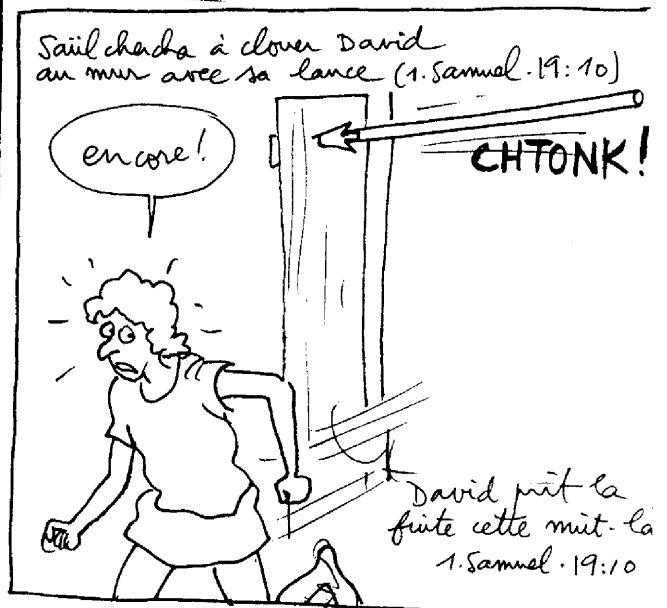 Saül chercha à clouer David
au mur avec sa lance (1. Samuel. 19:10)
encore!
CHTONK!
David prit la
fuite cette nuit-là
1. Samuel. 19:10